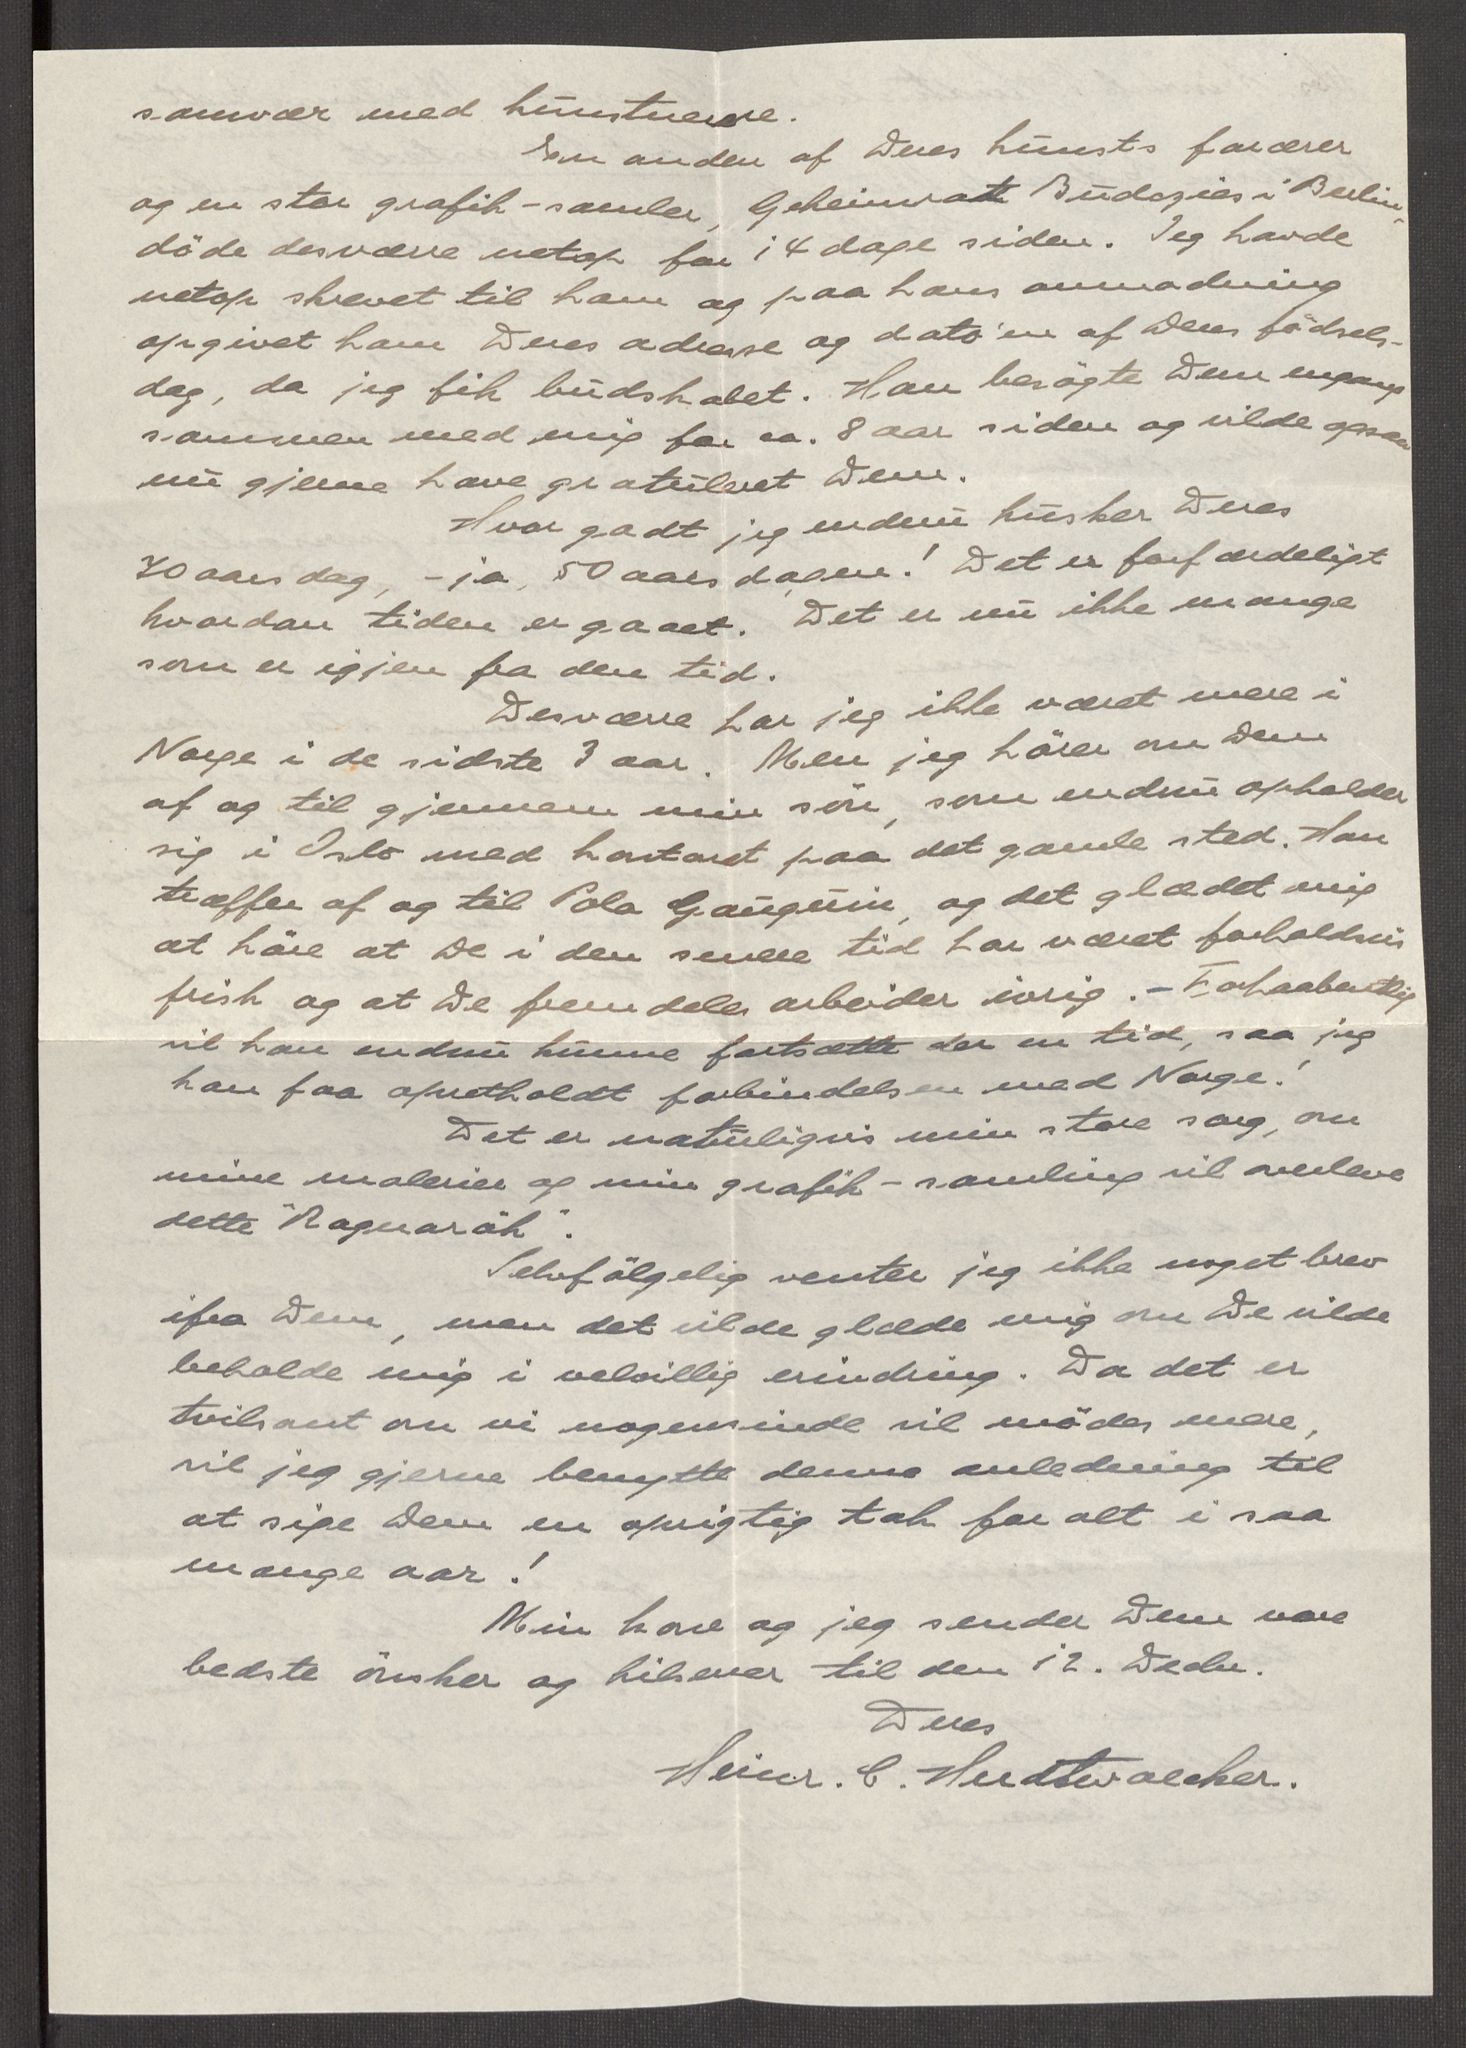 samvær med kunstnerne.
En anden af Deres kunsts farærer
og en stor grafik-samler, Geheimratt Budczies i Berlin,
döde desværre netop for 14 dage siden. Jeg havde
netop skrevet til ham og paa hans anmodning
opgivet ham Deres adresse og dato'en af Deres födsels-
dag, da jeg fik budskabet. Han besögte Dem engang
sammen med mig for ca. 8 aar siden og vilde ogsaa
nu gjerne have gratuleret Dem.
Hvor godt jeg endnu husker Deres
70 aars dag, - ja, 50 aars dagen! Det er forfærdeligt
hvordan tiden er gaaet. Det er nu ikke mange
som er igjen fra den tid.
Desværre har jeg ikke været mere i
Norge i de sidste 3 aar. Men jeg hörer om Dem
af og til gjennem min sön, som endnu opholder
sig i Oslo med kontoret paa det gamle sted. Han
træffer af og til Pola Gauguin, og det glædet mig
at höre at De i den senere tid har været forholdsvis
frisk og at De fremdeles arbeider ivrig. - Forhaabentlig
vil han endnu kunne fortsætte der en tid, saa jeg
kan faa opretholdt forbindelsen med Norge!
Det er naturligvis min store sorg, om
mine malerier og min grafik-samling vil overleve
dette "Ragnarök".
Selvfölgelig venter jeg ikke noget brev
ifra Dem, men det vilde glæde mig om De vilde
beholde mig i velvillig erindring. Da det er
tvilsomt om vi nogensinde vil mödes mere,
vil jeg gjerne benytte denne anledning til
at sige Dem en oprigtig tak for alt i saa
mange aar!
Min kone og jeg sender Dem vore
bedste önsker og hilsener til den 12. Decbr.
Deres
Heinr. C. Hudtwalcker.